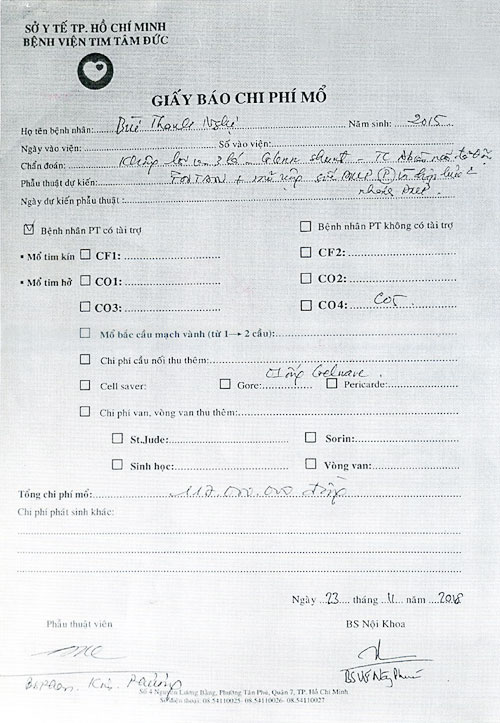 SỞ Y TẾ TP. HỒ CHÍ MINH
BỆNH VIỆN TIM TÂM ĐỨC
GIẤY BÁO CHI PHÍ MỔ
Họ tên bệnh nhân: Bùi Thanh Nghị Năm sinh: 2015
Ngày vào viện: Số vào viện:
Chẩn đoán: 3 lá - Glenn shunt - TC
Phẫu thuật dự kiến: FONTAN + mở rộng
Ngày dự kiến phẫu thuật:
Bệnh nhân PT có tài trợ Bệnh nhân PT không có tài trợ
• Mổ tim kín CF1: CF2:
• Mổ tim hở CO1: CO2:
CO3: CO4: CO5
Mổ bắc cầu mạch vành (từ 1 → 2 cầu):
Chi phí cầu nối thu thêm:
ống Gelweave.
Cell saver: Gore: Pericarde:
Chi phí van, vòng van thu thêm:
St.Jude: Sorin:
Sinh học: Vòng van:
Tổng chi phí mổ: 117.000.000 đồng
Chi phí phát sinh khác:
Ngày 23 tháng 11 năm 2018
Phẫu thuật viên BS Nội Khoa
Số 4 Nguyễn Lương Bằng, Phường Tân Phú, Quận 7, TP. Hồ Chí Minh
Số điện thoại: 08.54110025- 08.54110026- 08.54110027